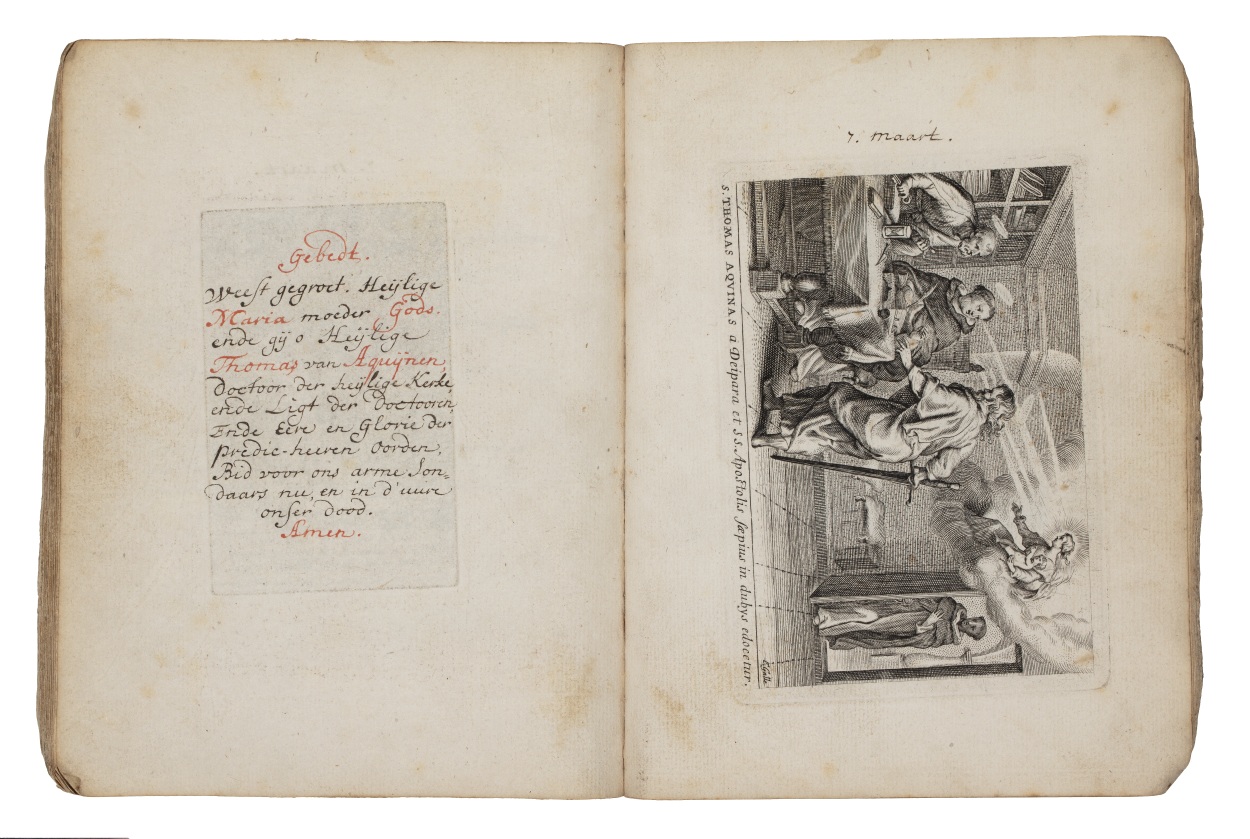 Gebedt.
Weest gegroet. Heijlige
Maria moeder Gods.
ende gij o Heijlige
Thomas van Aquijnen,
Doctoor der heijlige Kerke,
ende Ligt der Doctooren,
Ende Eere en Glorie der
predic-heeren Oorden,
Bid voor ons arme Son-
daars nu, en in d'uure
onser dood.
Amen.
7. maart.
S. THOMAS AQVINAS a Deipara et SS. Apostolis sæpius in dubijs edocetur.